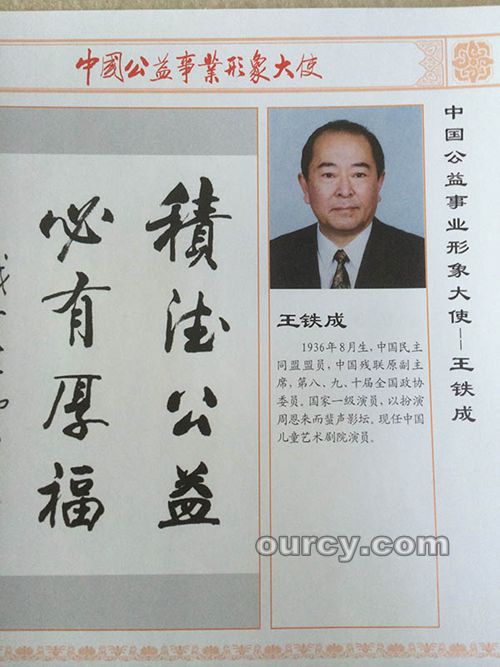 中國公益事業形象大使
中国公益事业形象大使——王铁成
積德公益
必有厚福
王铁成
1936年8月生,中国民主
同盟盟员,中国残联原副主
席,第八、九、十届全国政协
委员。国家一级演员,以扮演
周恩来而蜚声影坛。现任中国
儿童艺术剧院演员。
ourcy.com